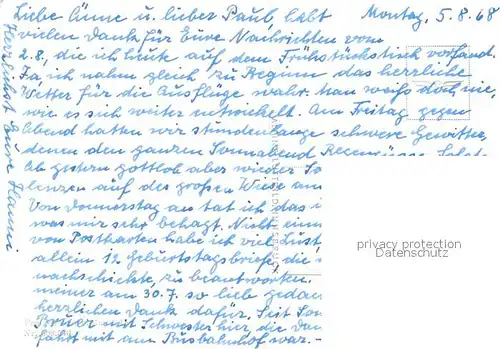 Liebe Änne u. lieber Paul, habt
Montag, 5.8.68
vielen Dank für Eure Nachrichten vom
2.8., die ich heute auf dem Frühstückstisch vorfand.
Ja ich nahm gleich zu Beginn das herrliche
Wetter für die Ausflüge wahr. Man weiß doch nie,
wie es sich weiter entwickelt. Am Freitag gegen
Abend hatten wir stundenlange schwere Gewitter,
denen den ganzen Sonnabend Regengüsse
Ab gestern gottlob aber wieder So
lenzen auf des großen Wiese am
Von Donnerstag an tat ich das
was mir sehr behagt. Nicht ein
von Postkarten habe ich viel Lust
allein 12 Geburtstagsbriefe die
nachschickte, zu beantworten.
meiner am 30.7. so lieb gedac
herzlichen Dank dafür. Seit Son
Bruer mit Schwester hier, die
fährt mit am Busbahnhof war.-
Herzlichst Eure Hanni
privacy protection
Datenschutz